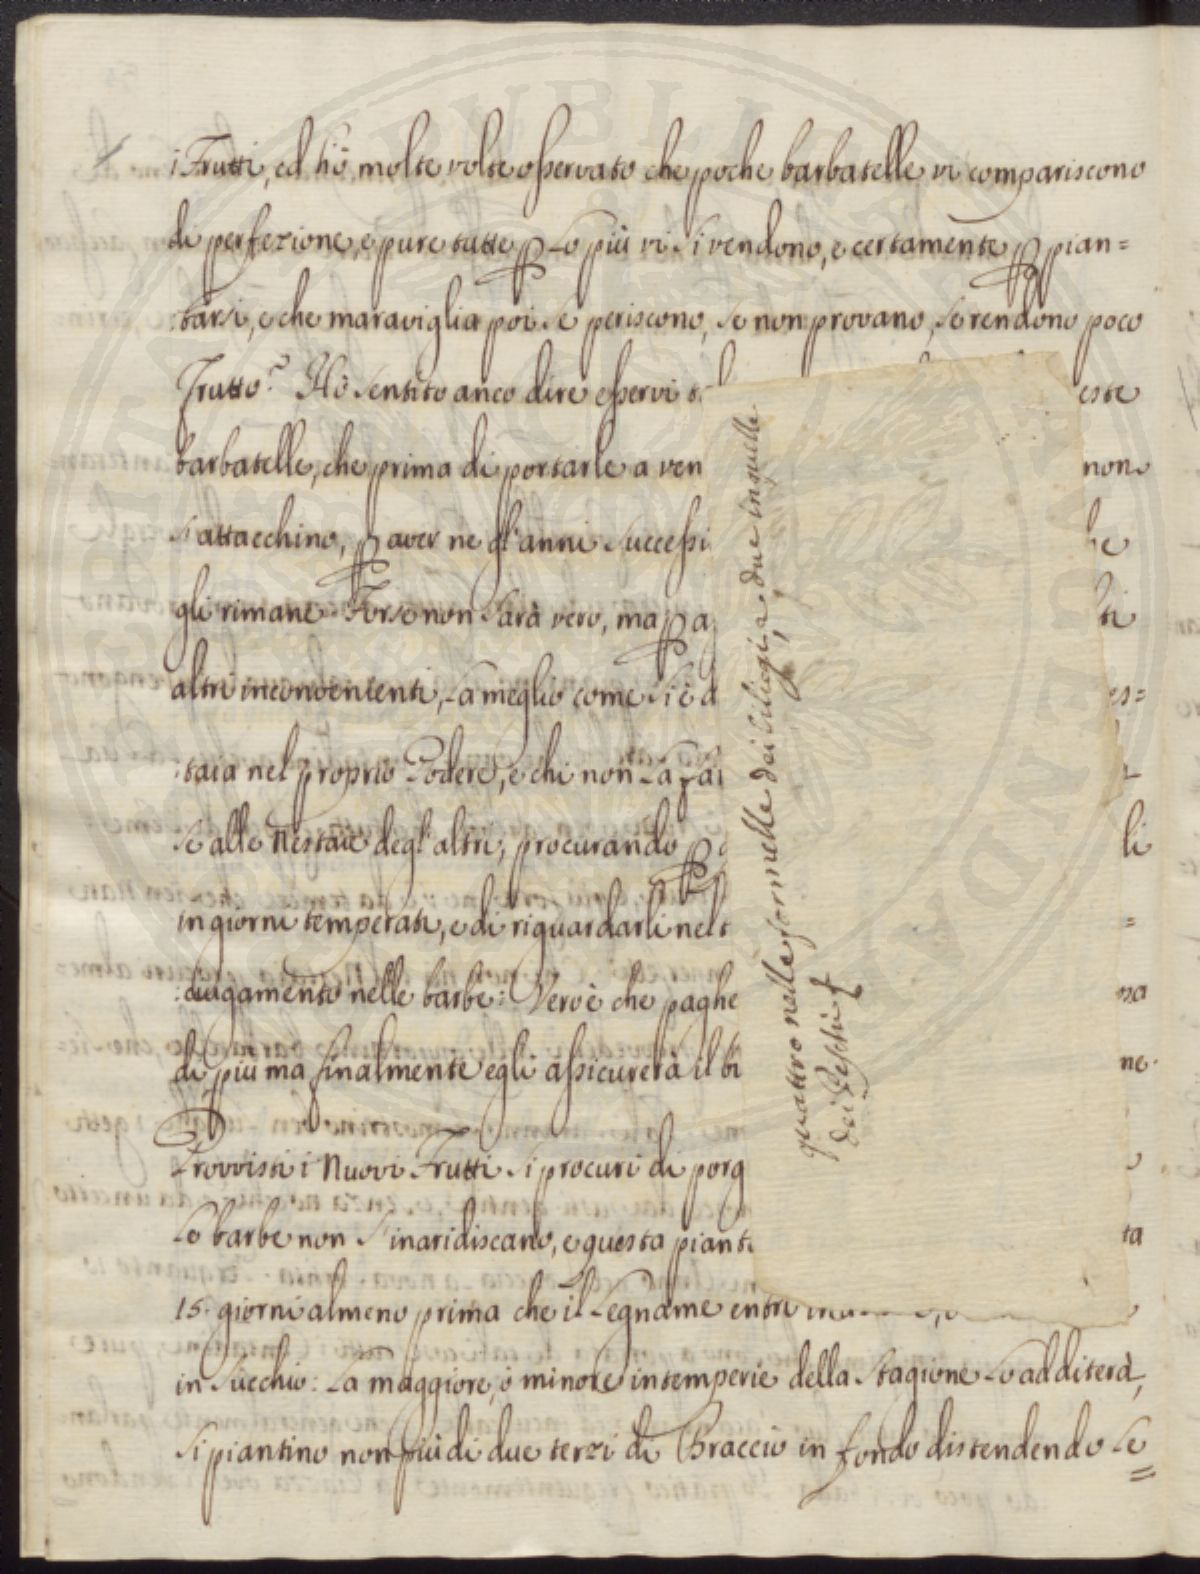 i Frutti, ed hò molte volte osservato che poche barbatelle vi compariscono
di perfezione, e pure tutte p lo più vi si vendono, e certamente p pian=
:tarsi, e che maraviglia poi se periscono, se non provano, se rendono poco
Frutto? Hò sentito anco dire esservi este
barbatelle, che prima di portarle a ven non
s'attacchino, p aver ne gl'anni successi he
gli rimane. Forse non sarà vero, ma p a ti
altri inconvenienti, fa meglio come si è d es=
:taia nel proprio Podere, e chi non la fa
se alle Nestaie degl'altri, procurando p li
in giorni temperati, e di riguardarli nel =
:ciugamento nelle barbe: Ver'è che paghe na
di più ma finalmente egli assicurerà il ne.
Provvisti i Nuovi Frutti si procuri di porg
Le barbe non s'inaridiscano, e questa piant ta
15. giorni almeno prima che il Legname entri
in Succhio: La maggiore, ò minore intemperie della Stagione lo additerà,
si piantino non più di due terzi di Braccio in fondo distendendo le
quattro nelle formelle dei Ciliegi, e due in quelle
dei Peschi